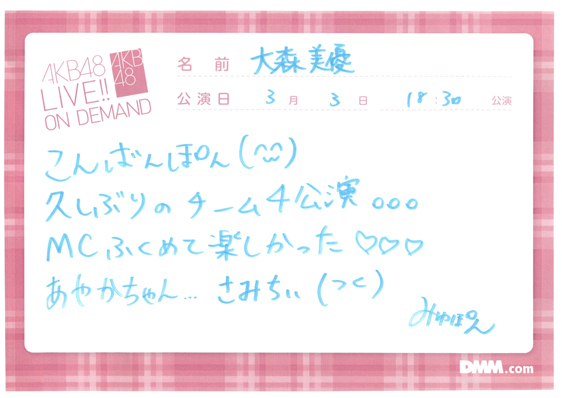 AKB48
LIVE!!
ON DEMAND
AKB
48
名 前 大森美優
公演日 3 月 3 日 18:30 公演
こんばんぽん(^ω^)
久しぶりのチーム4公演。。。
MCふくめて楽しかった♡♡♡
あやかちゃん... さみちぃ(つく)
みゆぽん
DMM.com